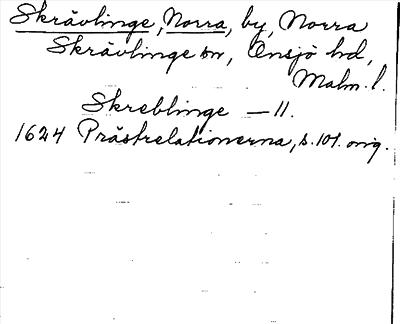 Skrävlinge, Norra, by, Norra
Skrävlinge sn, Onsjö hd,
Malm. l.
Skreblinge —11.
1624 Prästrelationerna, s. 101. orig.